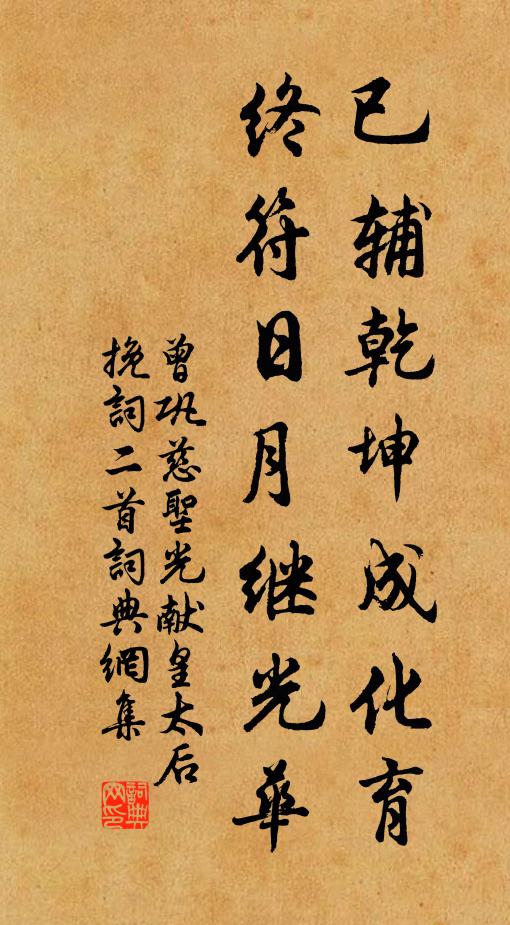 已辅乾坤成化育
终符日月继光華
曾巩慈聖光献皇太后
挽詞二首詞典網集
詞典网印